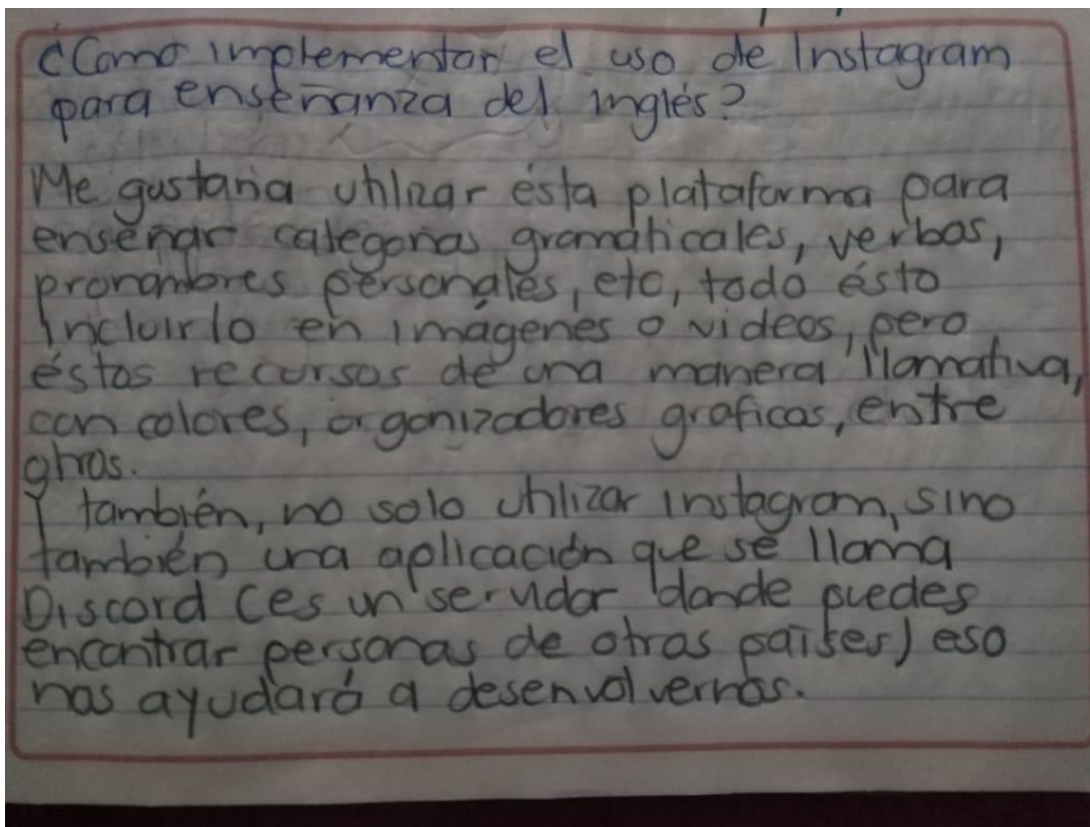 ¿Como implementar el uso de Instagram
para enseñanza del inglés?
Me gustaría utilizar ésta plataforma para
enseñar categorías gramáticales, verbos,
pronombres personales, etc, todo ésto
incluirlo en imágenes o videos, pero
éstos recursos de una manera llamativa,
con colores, organizadores graficos, entre
otros.
Y también, no solo utilizar instagram, sino
también una aplicación que se llama
Discord (es un servidor donde puedes
encontrar personas de otros países) eso
nos ayudará a desenvolvernos.